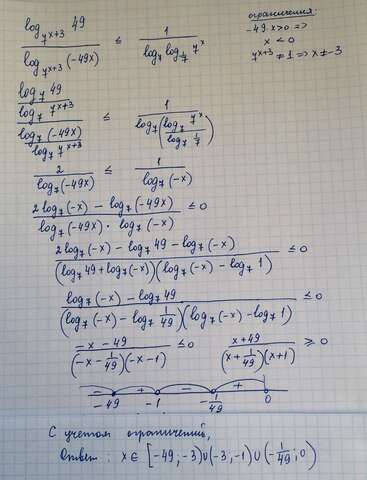 ограничения:
-49·x>0 =>
x < 0
7^{x+3} ≠ 1 => x ≠ -3
\frac{log_{7^{x+3}} 49}{log_{7^{x+3}} (-49x)} ≤ \frac{1}{log_7 log_{\frac{1}{7}} 7^x}
\frac{\frac{log_7 49}{log_7 7^{x+3}}}{\frac{log_7 (-49x)}{log_7 7^{x+3}}} ≤ \frac{1}{log_7 (\frac{log_7 7^x}{log_7 \frac{1}{7}})}
\frac{2}{log_7(-49x)} ≤ \frac{1}{log_7(-x)}
\frac{2log_7(-x) - log_7(-49x)}{log_7(-49x) · log_7(-x)} ≤ 0
\frac{2log_7(-x) - log_7 49 - log_7(-x)}{(log_7 49 + log_7(-x))(log_7(-x) - log_7 1)} ≤ 0
\frac{log_7(-x) - log_7 49}{(log_7(-x) - log_7 \frac{1}{49})(log_7(-x) - log_7 1)} ≤ 0
\frac{-x - 49}{(-x - \frac{1}{49})(-x - 1)} ≤ 0 \frac{x + 49}{(x + \frac{1}{49})(x + 1)} ≥ 0
- + - +
-49 -1 -\frac{1}{49} 0
С учетом ограничений,
Ответ: x ∈ [-49; -3) ∪ (-3, -1) ∪ (-\frac{1}{49}; 0)